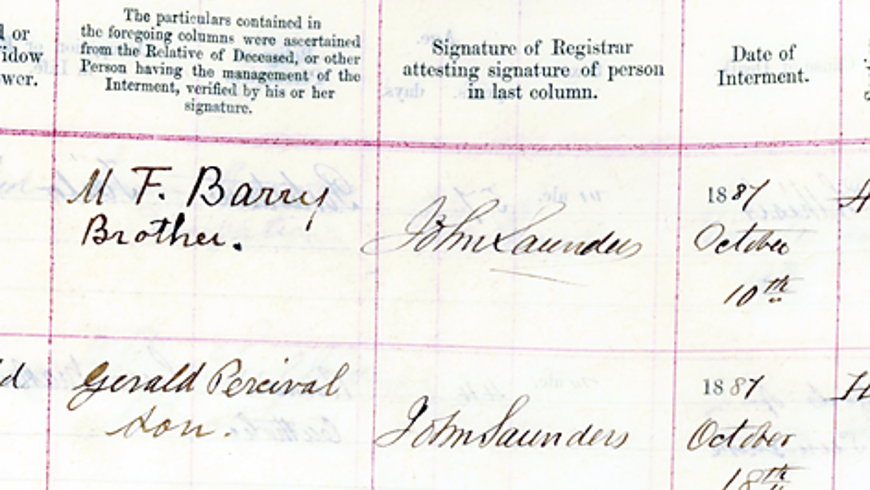 l or
Widow
wer.
The particulars contained in
the foregoing columns were ascertained
from the Relative of Deceased, or other
Person having the management of the
Interment, verified by his or her
signature.
Signature of Registrar
attesting signature of person
in last column.
Date of
Interment.
M F. Barry
Brother.
John Saunders
1887
October
10th
d
Gerald Percival
Son.
John Saunders
1887
October
18th